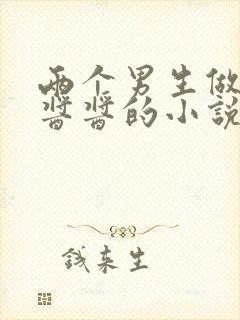 两个男生做
酱酱的小说
钱来生